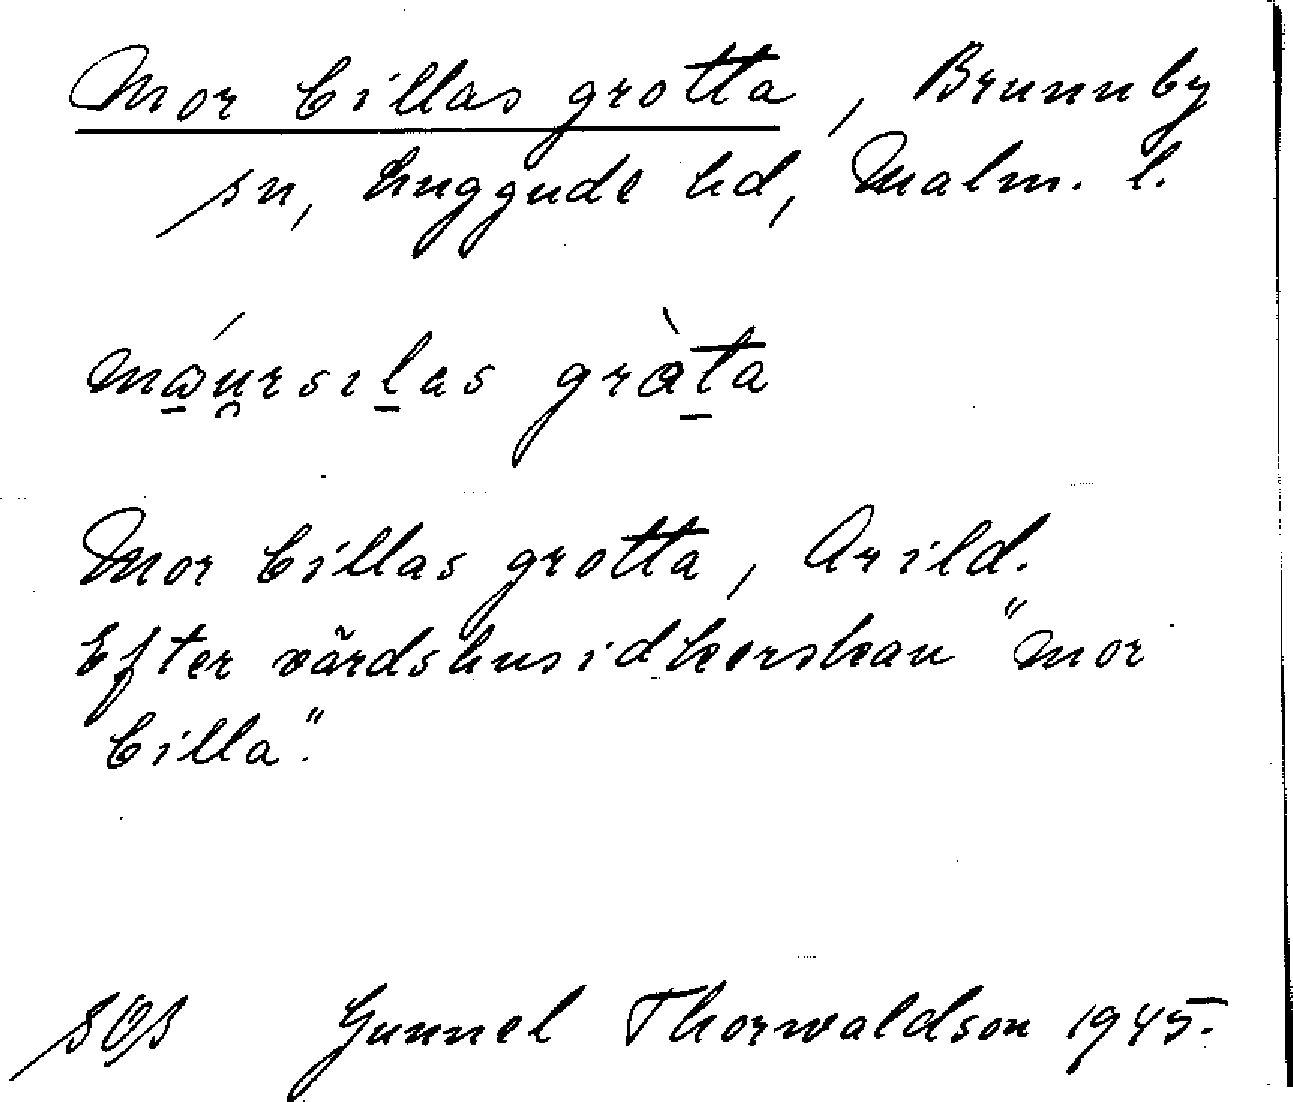 Mor Cillas grotta, Brunnby
sn, Luggude hd, Malm. l.
Mor Cillas grotta, Arild.
Efter värdshusidkerskan "mor
Cilla".
SOS Gunnel Thorwaldson 1945.